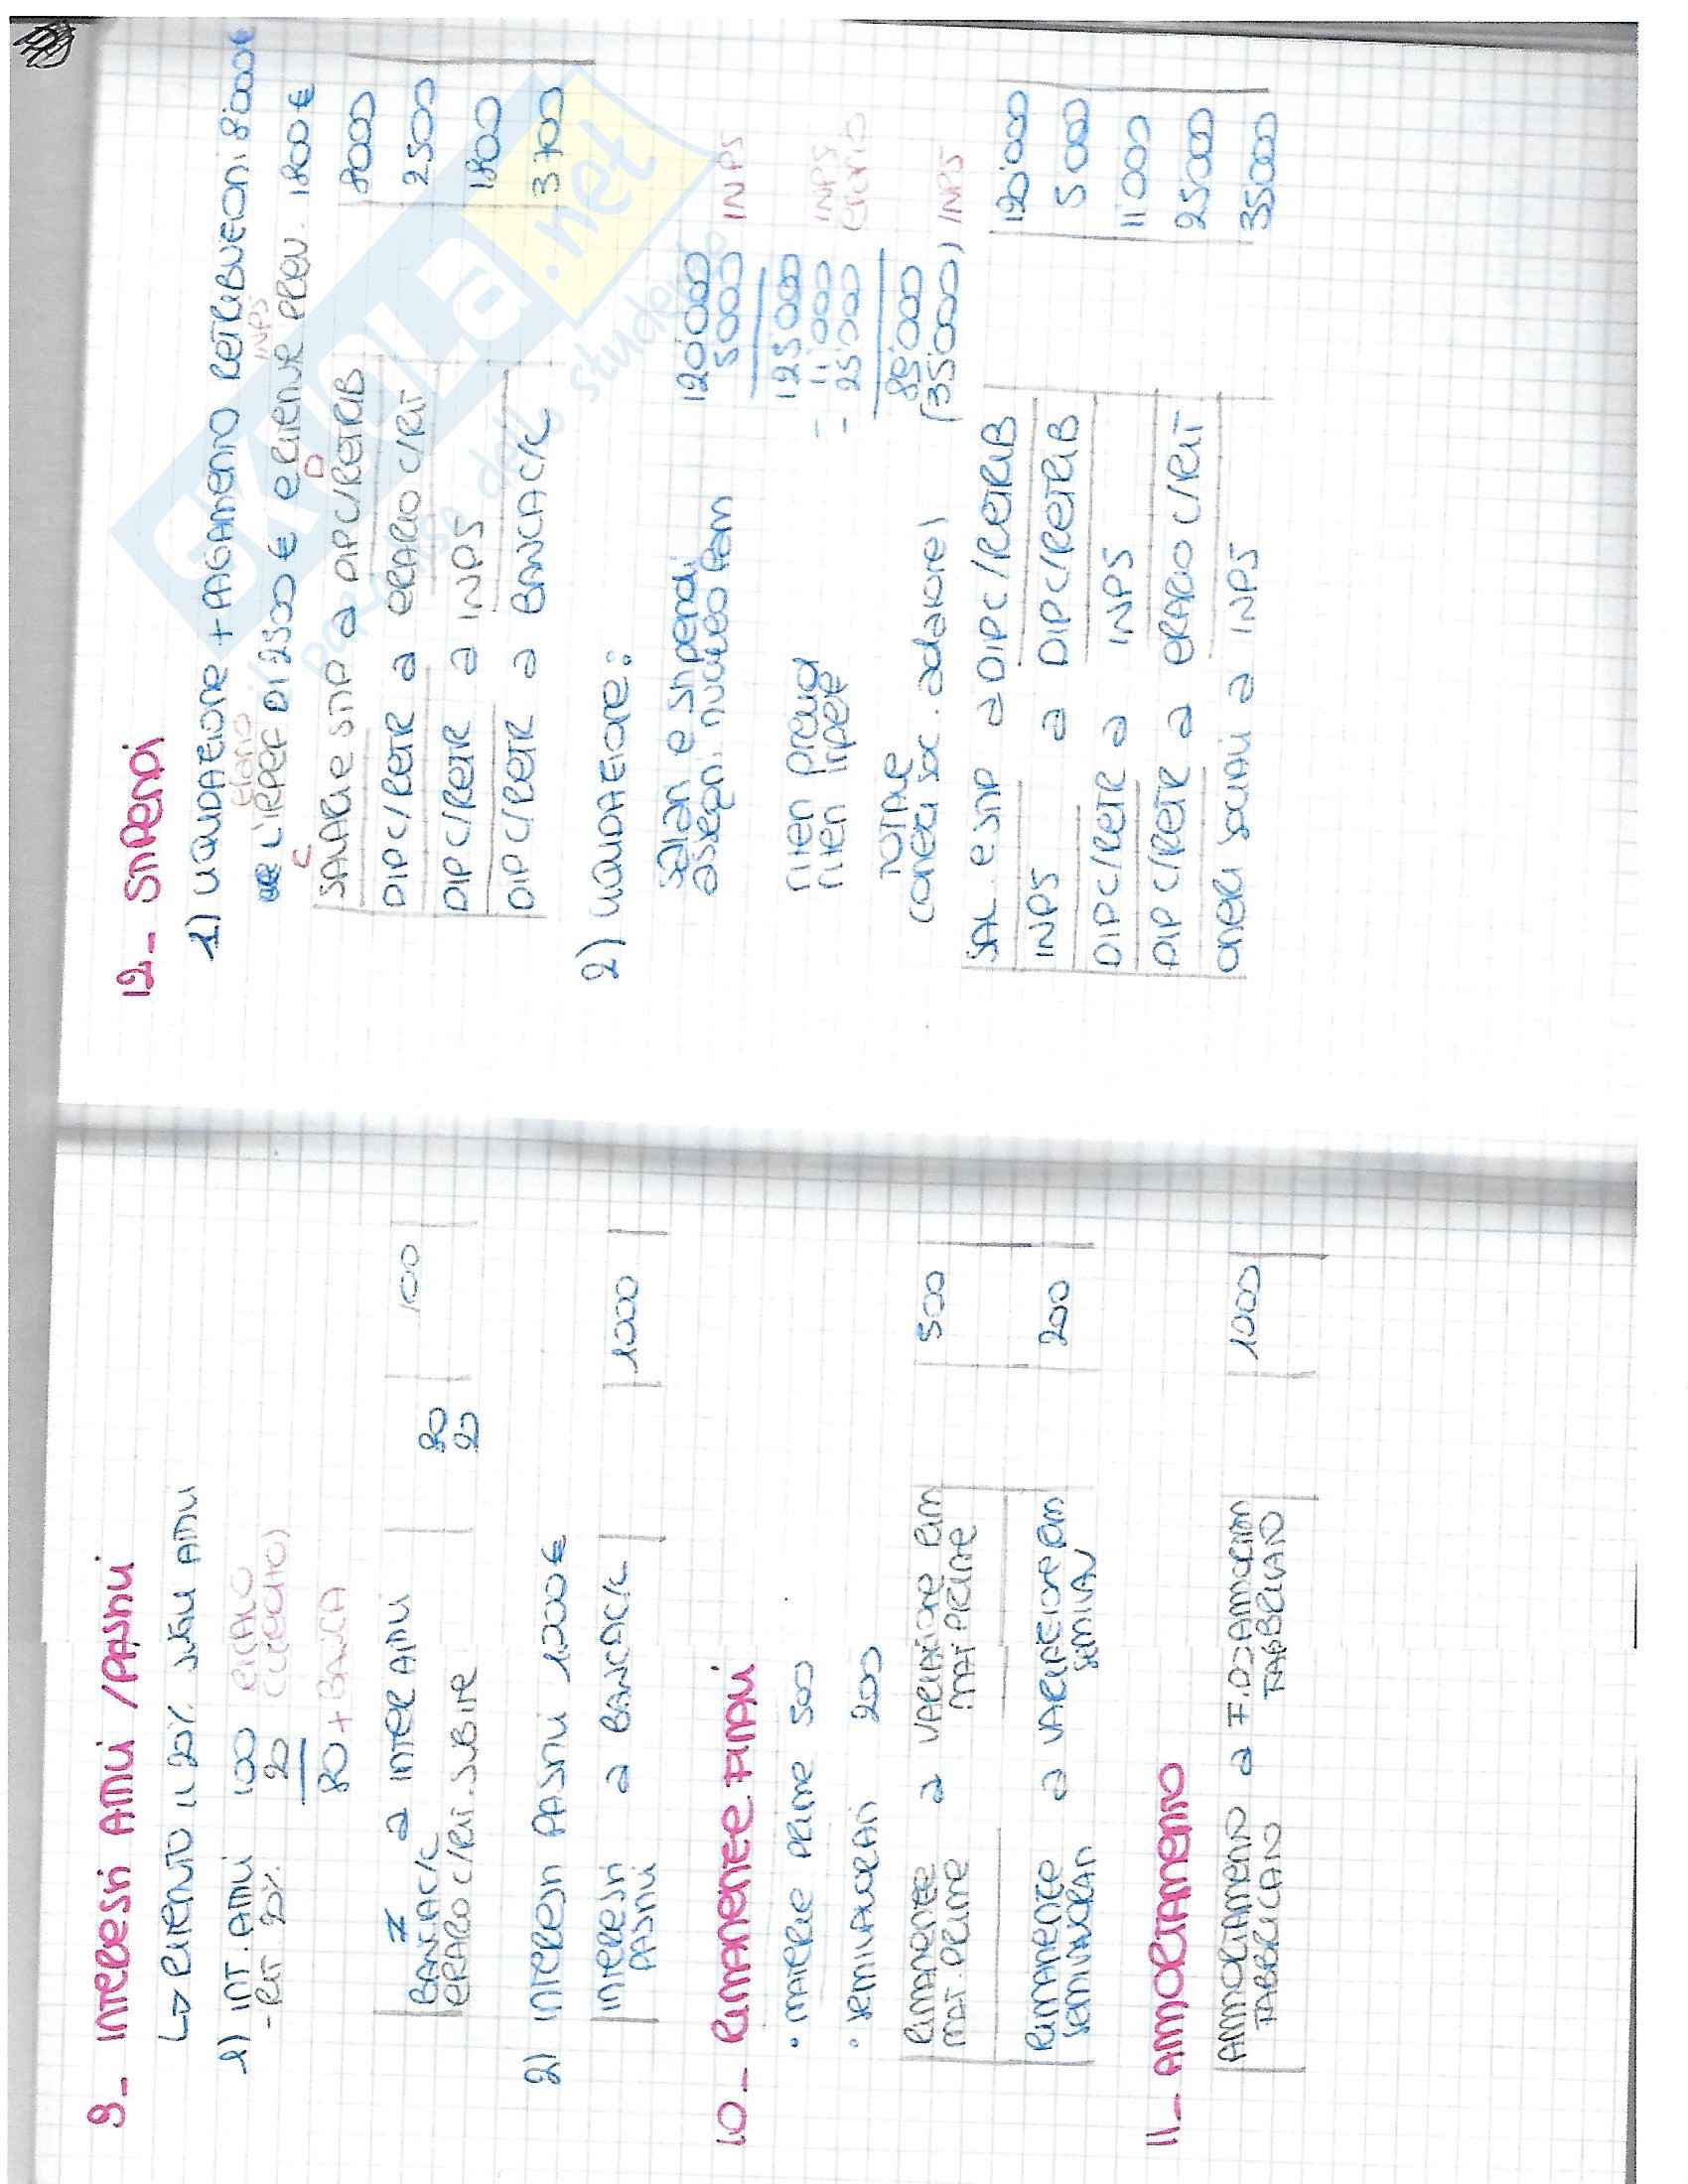 9_ INTERESSI ATTIVI / PASSIVI
↳ RITENUTO IL 20% SUGLI ATTIVI
1) INT. ATTIVI 100 RICAVO
- RIT 20% 20 (CREDITO)
80 + BANCA
BANCA C/C a INTER ATTIVI 80 100
ERARIO C/RIT. SUBITE 20
2) INTERESSI PASSIVI 1000€
INTERESSI PASSIVI a BANCA C/C 1000
10_ RIMANENZE FINALI
• MATERIE PRIME 500
• SEMILAVORATI 200
RIMANENZE MAT. PRIME a VARIAZIONE RIM MAT PRIME 500
RIMANENZE SEMILAVORATI a VARIAZIONE RIM SEMILAV 200
11_ AMMORTAMENTO
AMMORTAMENTO FABBRICATO a F.DO AMMORTAM FABBRICATO 1000
12_ STIPENDI
1) LIQUIDAZIONE + PAGAMENTO RETRIBUZIONI 8000€
ERARIO INPS
L'IRPEF DI 2500 € E RITENUTE PREV. 1800 €
C D
SALARI E STIP a DIP C/RETRIB 8000
DIP C/RETR a ERARIO C/RIT 2500
DIP C/RETR a INPS 1800
DIP C/RETR a BANCA C/C 3700
2) LIQUIDAZIONE:
salari e stipendi 120'000
assegni nucleo fam 5'000 INPS
125'000
riten previd - 11'000 INPS
riten irpef - 25'000 erario
TOTALE 89'000
(oneri soc. datore) (35'000) INPS
SAL. E STIP a DIP C/RETRIB 120'000
INPS a DIP C/RETRIB 5'000
DIP C/RETR a INPS 11'000
DIP C/RETR a ERARIO C/RIT 25'000
ONERI SOCIALI a INPS 35000
SKUOLA.net
paradiso dello studente